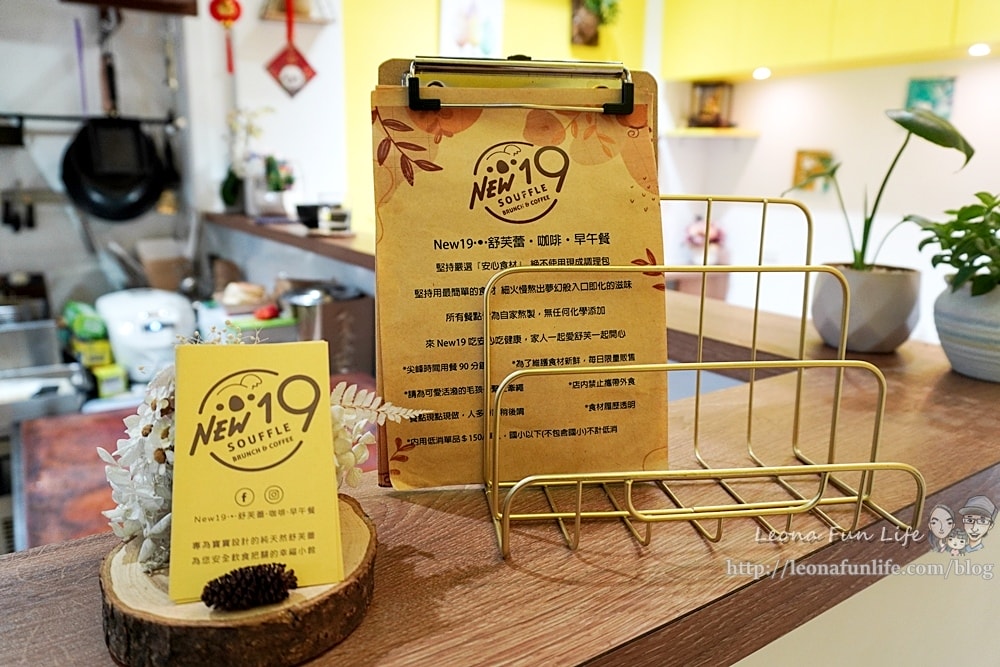 NEW 19
SOUFFLE
BRUNCH & COFFEE
New19·•·舒芙蕾·咖啡·早午餐
堅持嚴選「安心食材」絕不使用現成調理包
堅持用最簡單的食材 細火慢熬出夢幻般入口即化的滋味
所有餐點 為自家熬製，無任何化學添加
來 New19 吃安心吃健康，家人一起愛舒芙一起開心
*尖峰時間用餐 90 分鐘
*為了維護食材新鮮，每日限量販售
*請為可愛活潑的毛孩 牽繩
*店內禁止攜帶外食
餐點現點現做，人多 稍後唷
*食材履歷透明
*內用低消單品＄150/ ，國小以下(不包含國小)不計低消
NEW 19
SOUFFLE
BRUNCH & COFFEE
New19·•·舒芙蕾·咖啡·早午餐
專為寶寶設計的純天然舒芙蕾
為您安全飲食把關的幸福小館
Leona Fun Life
http://leonafunlife.com/blog